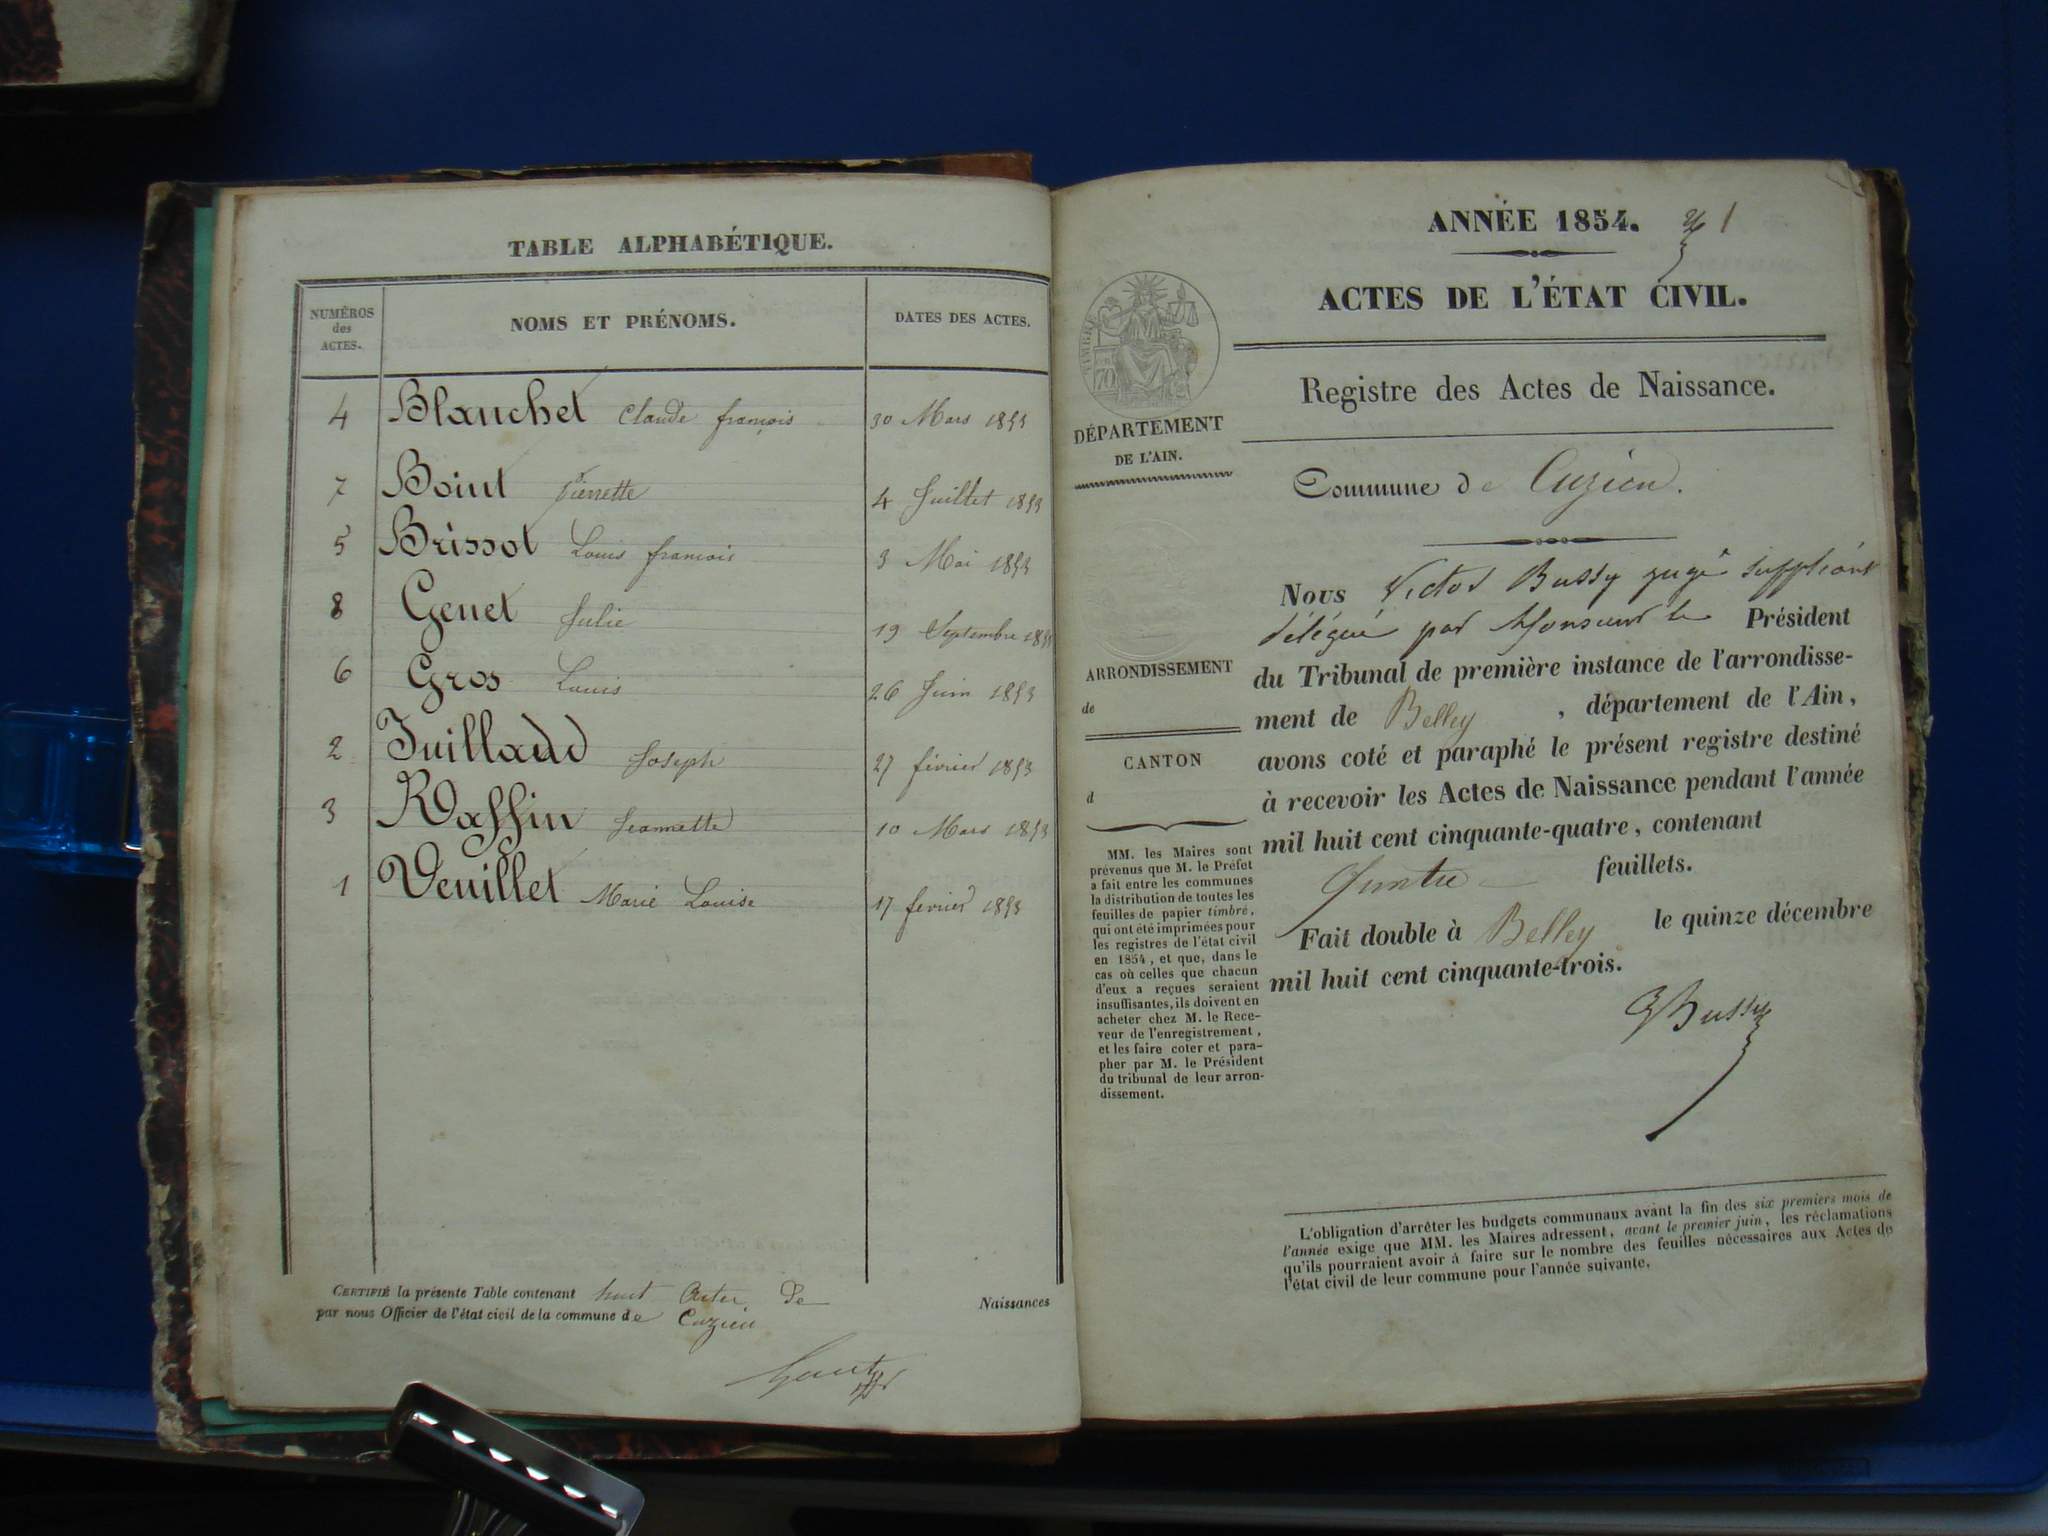 TABLE ALPHABÉTIQUE.
NUMÉROS des ACTES. NOMS ET PRÉNOMS. DATES DES ACTES.
4 Blanchet Claude françois 30 Mars 1853
7 Boint Pierrette 4 Juillet 1853
5 Brissot Louis francois 3 Mai 1853
8 Genet Julie 19 Septembre 1853
6 Gros Louis 26 Juin 1853
2 Juilland Joseph 27 février 1853
3 Raffin Jeannette 10 Mars 1853
1 Veuillet Marie Louise 17 février 1853
CERTIFIÉ la présente Table contenant huit Actes de Naissances
par nous Officier de l'état civil de la commune de Cuzieu
ANNÉE 1854. 1
ACTES DE L'ÉTAT CIVIL.
TIMBRE
70
Registre des Actes de Naissance.
DÉPARTEMENT
DE L'AIN.
Commune de Cuzieu.
ARRONDISSEMENT
de
CANTON
d
MM. les Maires sont
prévenus que M. le Préfet
a fait entre les communes
la distribution de toutes les
feuilles de papier timbré,
qui ont été imprimées pour
les registres de l'état civil
en 1854, et que, dans le
cas où celles que chacun
d'eux a reçues seraient
insuffisantes, ils doivent en
acheter chez M. le Rece-
veur de l'enregistrement,
et les faire coter et para-
pher par M. le Président
du tribunal de leur arron-
dissement.
Nous Victor Bussy juge suppléant
délégué par Monsieur le Président
du Tribunal de première instance de l'arrondisse-
ment de Belley, département de l'Ain,
avons coté et paraphé le présent registre destiné
à recevoir les Actes de Naissance pendant l'année
mil huit cent cinquante-quatre, contenant
feuillets.
Fait double à Belley le quinze décembre
mil huit cent cinquante-trois.
Bussy
L'obligation d'arrêter les budgets communaux avant la fin des six premiers mois de
l'année exige que MM. les Maires adressent, avant le premier juin, les réclamations
qu'ils pourraient avoir à faire sur le nombre des feuilles nécessaires aux Actes de
l'état civil de leur commune pour l'année suivante.